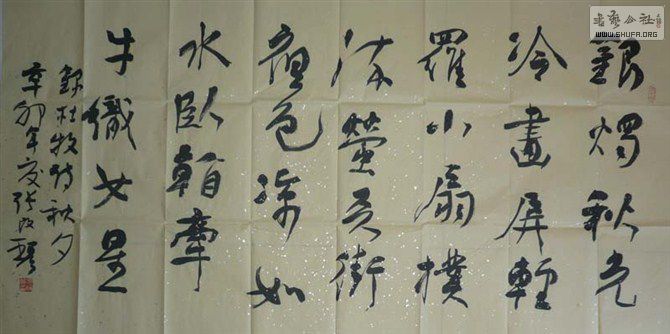 銀燭秋光
冷畫屏輕
羅小扇撲
流螢天街
夜色涼如
水臥看牽
牛織女星
錄杜牧詩秋夕
辛卯年夏張改琴
書藝公社
WWW.SHUFA.ORG